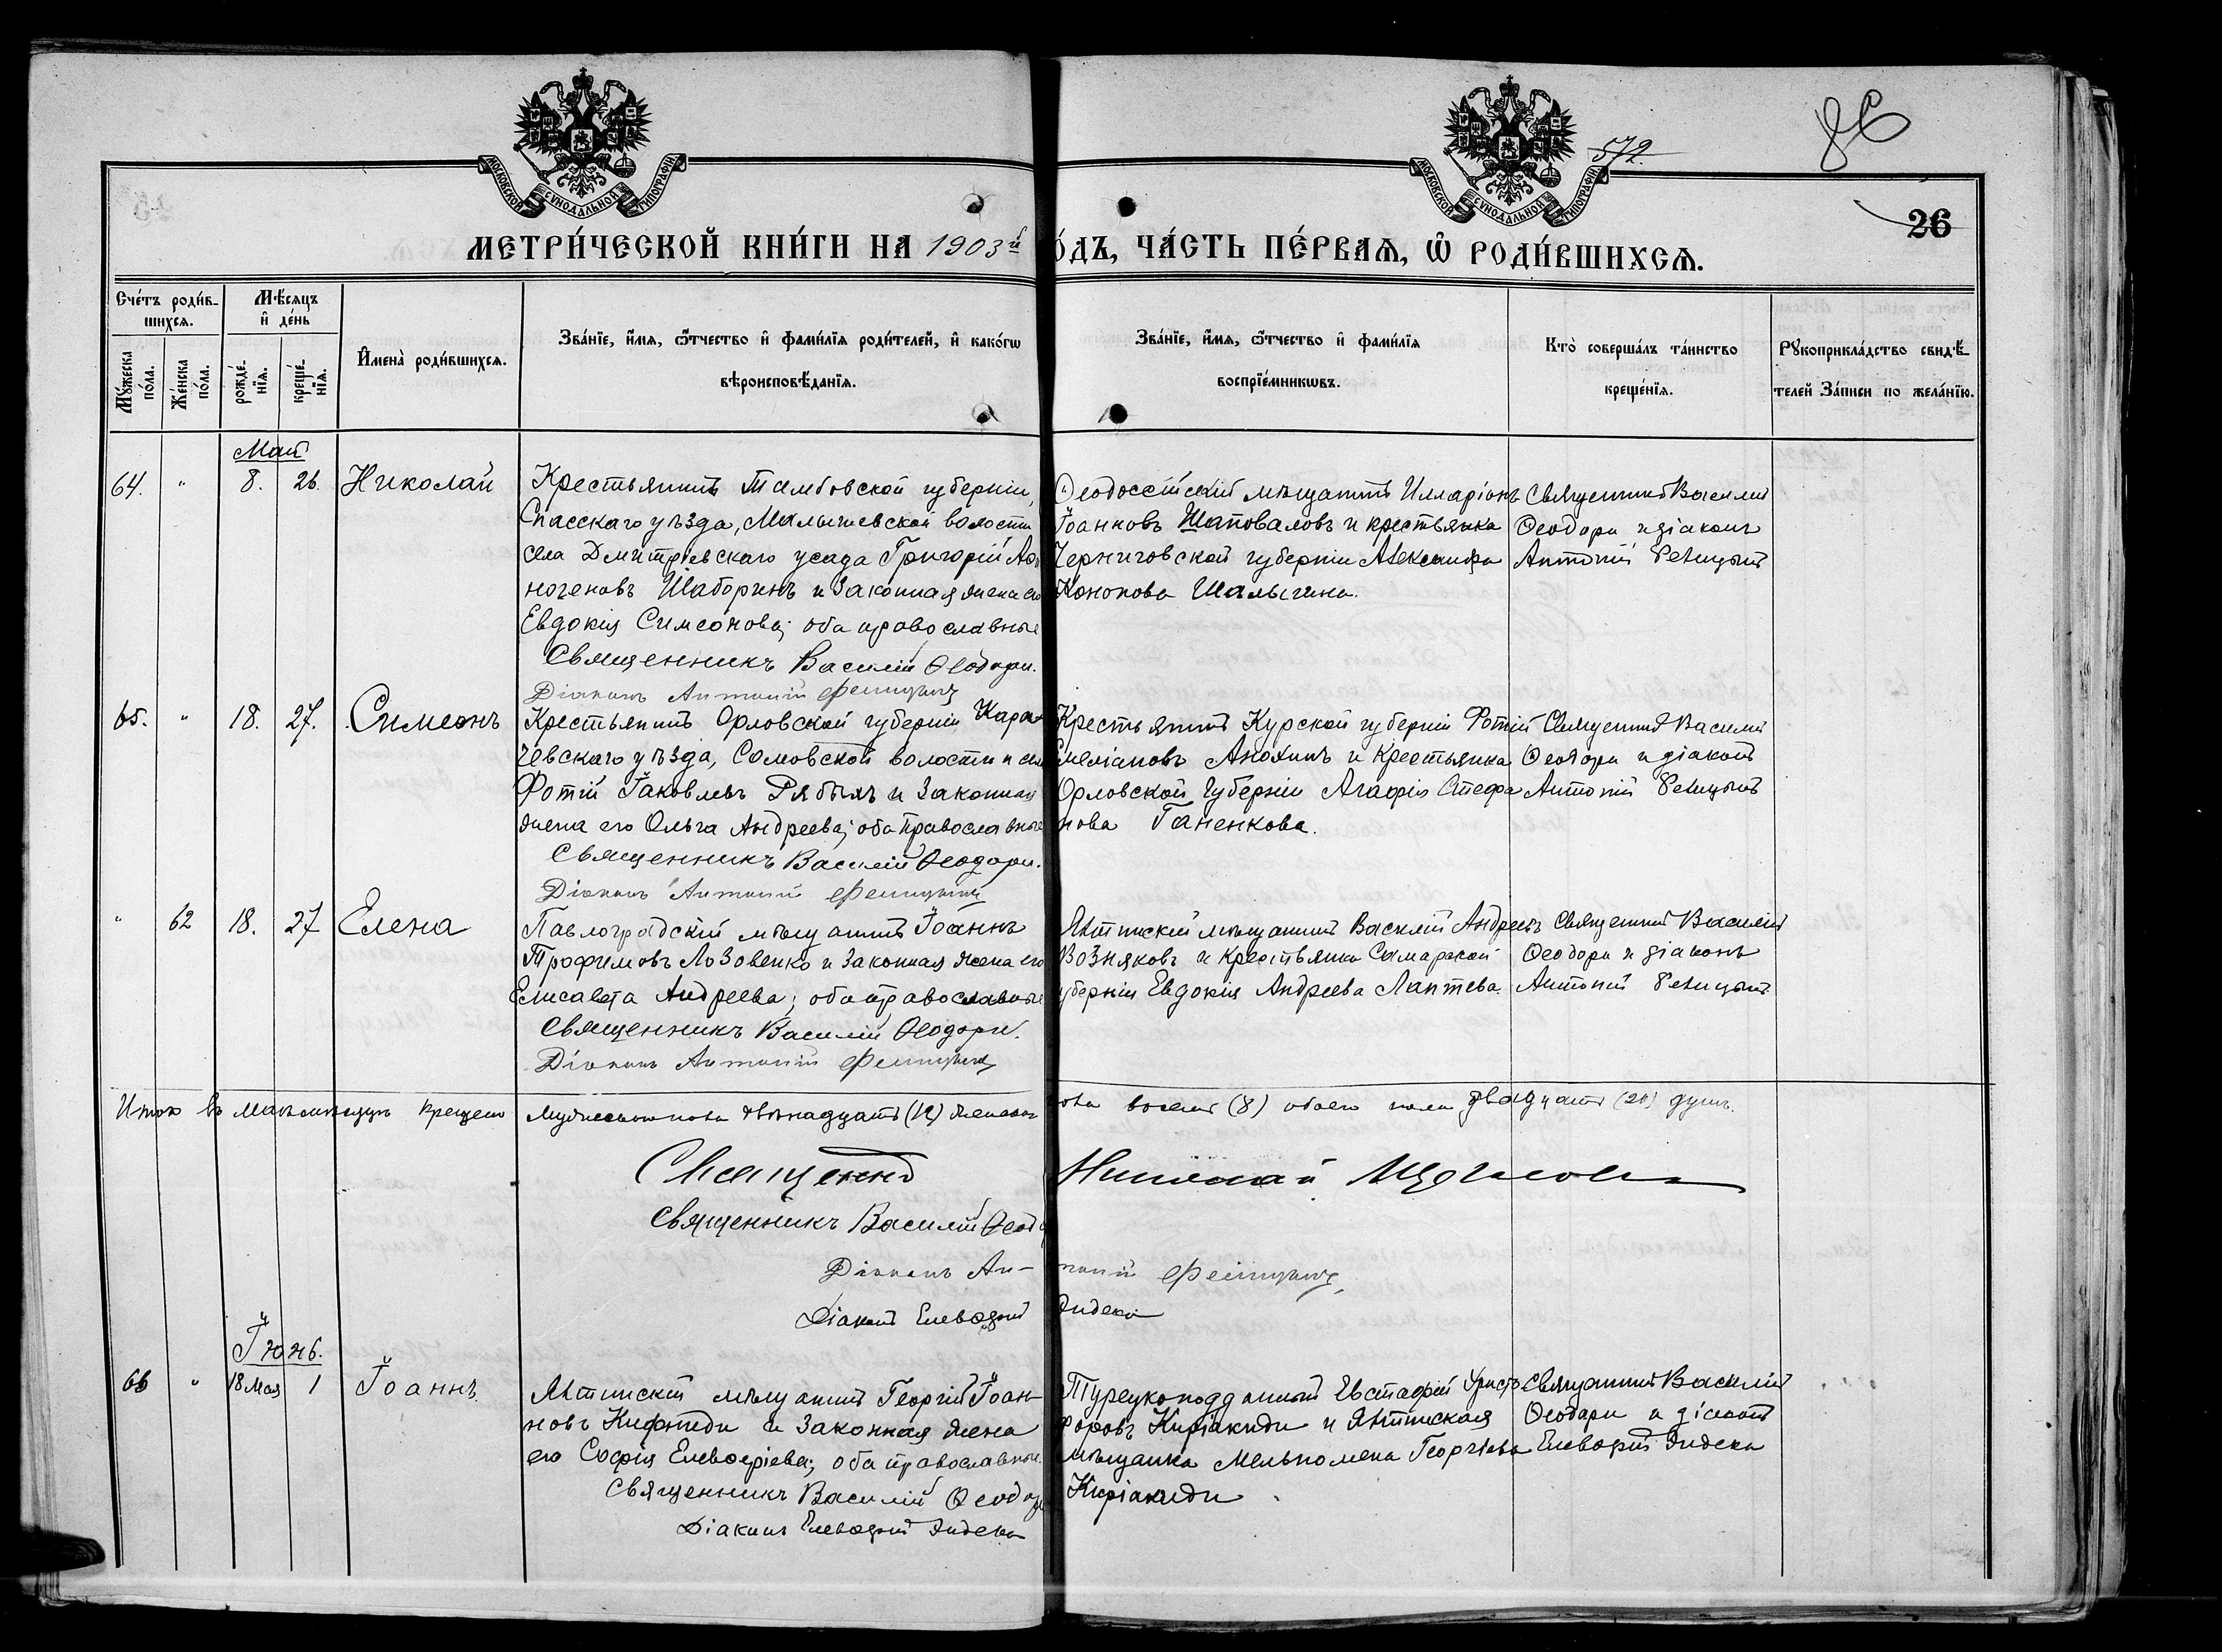 МОСКОВСКОЙ СѴНОДАЛЬНОЙ ТИПОГРАФІИ
МОСКОВСКОЙ СѴНОДАЛЬНОЙ ТИПОГРАФІИ
572.
26
МЕТРИ́ЧЕСКОЙ КНИ́ГИ НА 1903й
О́ДЪ, ЧА́СТЬ ПЕ́РВАѦ, Ѡ҆ РОДИ́ВШИХСѦ.
Сче́тъ роди́в-
шихсѧ.
Мꙋ́жеска по́ла.
Же́нска по́ла.
Мѣ́сѧцъ
и҆ де́нь
рожде́-
нїѧ.
креще́-
нїѧ.
И҆мена̀ роди́вшихсѧ.
Зва́нїе, и҆́мѧ, ѻ҆́тчество и҆ фами́лїѧ роди́телей, и҆ како́гѡ
вѣроисповѣ́данїѧ.
Зва́нїе, и҆́мѧ, ѻ҆́тчество и҆ фами́лїѧ
воспрїе́мникѡвъ.
Кто̀ соверша́лъ та́инство
креще́нїѧ.
Рꙋкоприкла́дство свидѣ́-
телей За́писи по жела́нїю.
Май
64. " 8. 26. Николай
Крестьянинъ Тамбовской губерніи,
Спасскаго уѣзда, Малышевской волости
села Дмитріевскаго усада Григорій
ногеновъ Шаборинъ и законная жена его
Евдокія Симеонова; оба православные
Священникъ Василій Ѳеодори.
Діаконъ Антоній Феницынъ
Ѳеодосійскій мѣщанинъ Илларіонъ
Іоанновъ Шаповаловъ и крестьянка
Черниговской губерніи Александра
Кононова Шалыгина.
Священникъ Василій
Ѳеодори и діаконъ
Антоній Феницынъ
65. " 18. 27. Симеонъ
Крестьянинъ Орловской губерніи Кара-
чевскаго уѣзда, Самовской волости и села
Фотій Іаковлевъ Рябыхъ и законная
жена его Ольга Андреева; оба православные
Священникъ Василій Ѳеодори.
Діаконъ Антоній Феницынъ
Крестьянинъ Курской губерніи Фотій
Емеліановъ Анохинъ и крестьянка
Орловской губерніи Агафія Стефа
нова Ганенкова.
Священникъ Василій
Ѳеодори и діаконъ
Антоній Феницынъ
" 62 18. 27 Елена
Павлоградскій мѣщанинъ Іоаннъ
Трофимовъ Лозовенко и законная жена его
Елисавета Андреева; оба православные
Священникъ Василій Ѳеодори.
Діаконъ Антоній Феницынъ
Ялтинскій мѣщанинъ Василій Андреевъ
Возняковъ и крестьянка Самарской
губерніи Евдокія Андреева Лаптева.
Священникъ Василій
Ѳеодори и діаконъ
Антоній Феницынъ
Итого въ маѣ мѣсяцѣ крещено мужескаго пола двѣнадцать (12) женскаго
пола восемь (8) обоего пола двадцать (20) душъ.
Священникъ Николай
Священникъ Василій Ѳеодо
Діаконъ Ан-тоній Феницынъ
Діаконъ Елевѳерій Эндека
Іюнь.
66 " 18 Мая 1 Іоаннъ
Ялтинскій мѣщанинъ Георгій Іоан-
новъ Кифниди и законная жена
его Софія Елевѳеріева; оба православные.
Священникъ Василій Ѳеодори
Діаконъ Елевѳерій Эндека
Турецкоподданный Евстафій Христо
форовъ Киріакиди и Ялтинская
мѣщанка Мельпомена Георгіева
Киріакиди
Священникъ Василій
Ѳеодори и діаконъ
Елевѳерій Эндека